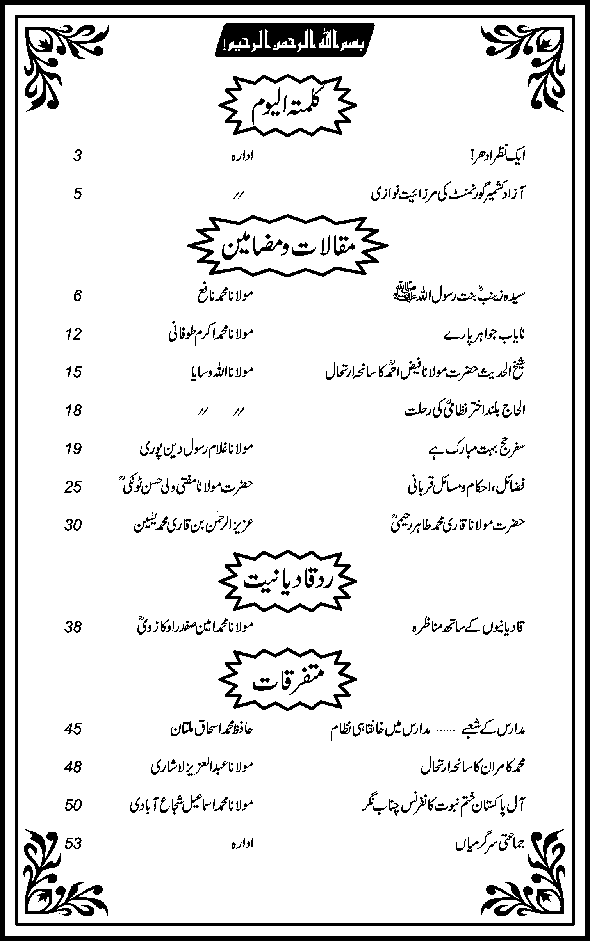 بسم اللہ الرحمن الرحیم!
کلمتہ الیوم
ایک نظر ادھر! ادارہ 3
آزاد کشمیر گورنمنٹ کی مرزائیت نوازی // 5
مقالات و مضامین
سیدہ زینبؓ بنت رسول اللہ ﷺ مولانا محمد نافع 6
نایاب جواہر پارے مولانا محمد اکرم طوفانی 12
شیخ الحدیث حضرت مولانا فیض احمدؒ کا سانحہ ارتحال مولانا اللہ وسایا 15
الحاج بلند اختر نظامیؒ کی رحلت // // 18
سفر حج بہت مبارک ہے مولانا غلام رسول دین پوری 19
فضائل، احکام و مسائل قربانی حضرت مولانا مفتی ولی حسن ٹونکیؒ 25
حضرت مولانا قاری محمد طاہر رحیمیؒ عزیز الرحمٰن بن قاری محمد یٰسین 30
رد قادیانیت
قادیانیوں کے ساتھ مناظرہ مولانا محمد امین صفدر اوکاڑویؒ 38
متفرقات
مدارس کے شعبے ...... مدارس میں خانقاہی نظام حافظ محمد اسحاق ملتان 45
محمد کامران کا سانحہ ارتحال مولانا عبدالعزیز لاشاری 48
آل پاکستان ختم نبوت کانفرنس چناب نگر مولانا محمد اسماعیل شجاع آبادی 50
جماعتی سرگرمیاں ادارہ 53